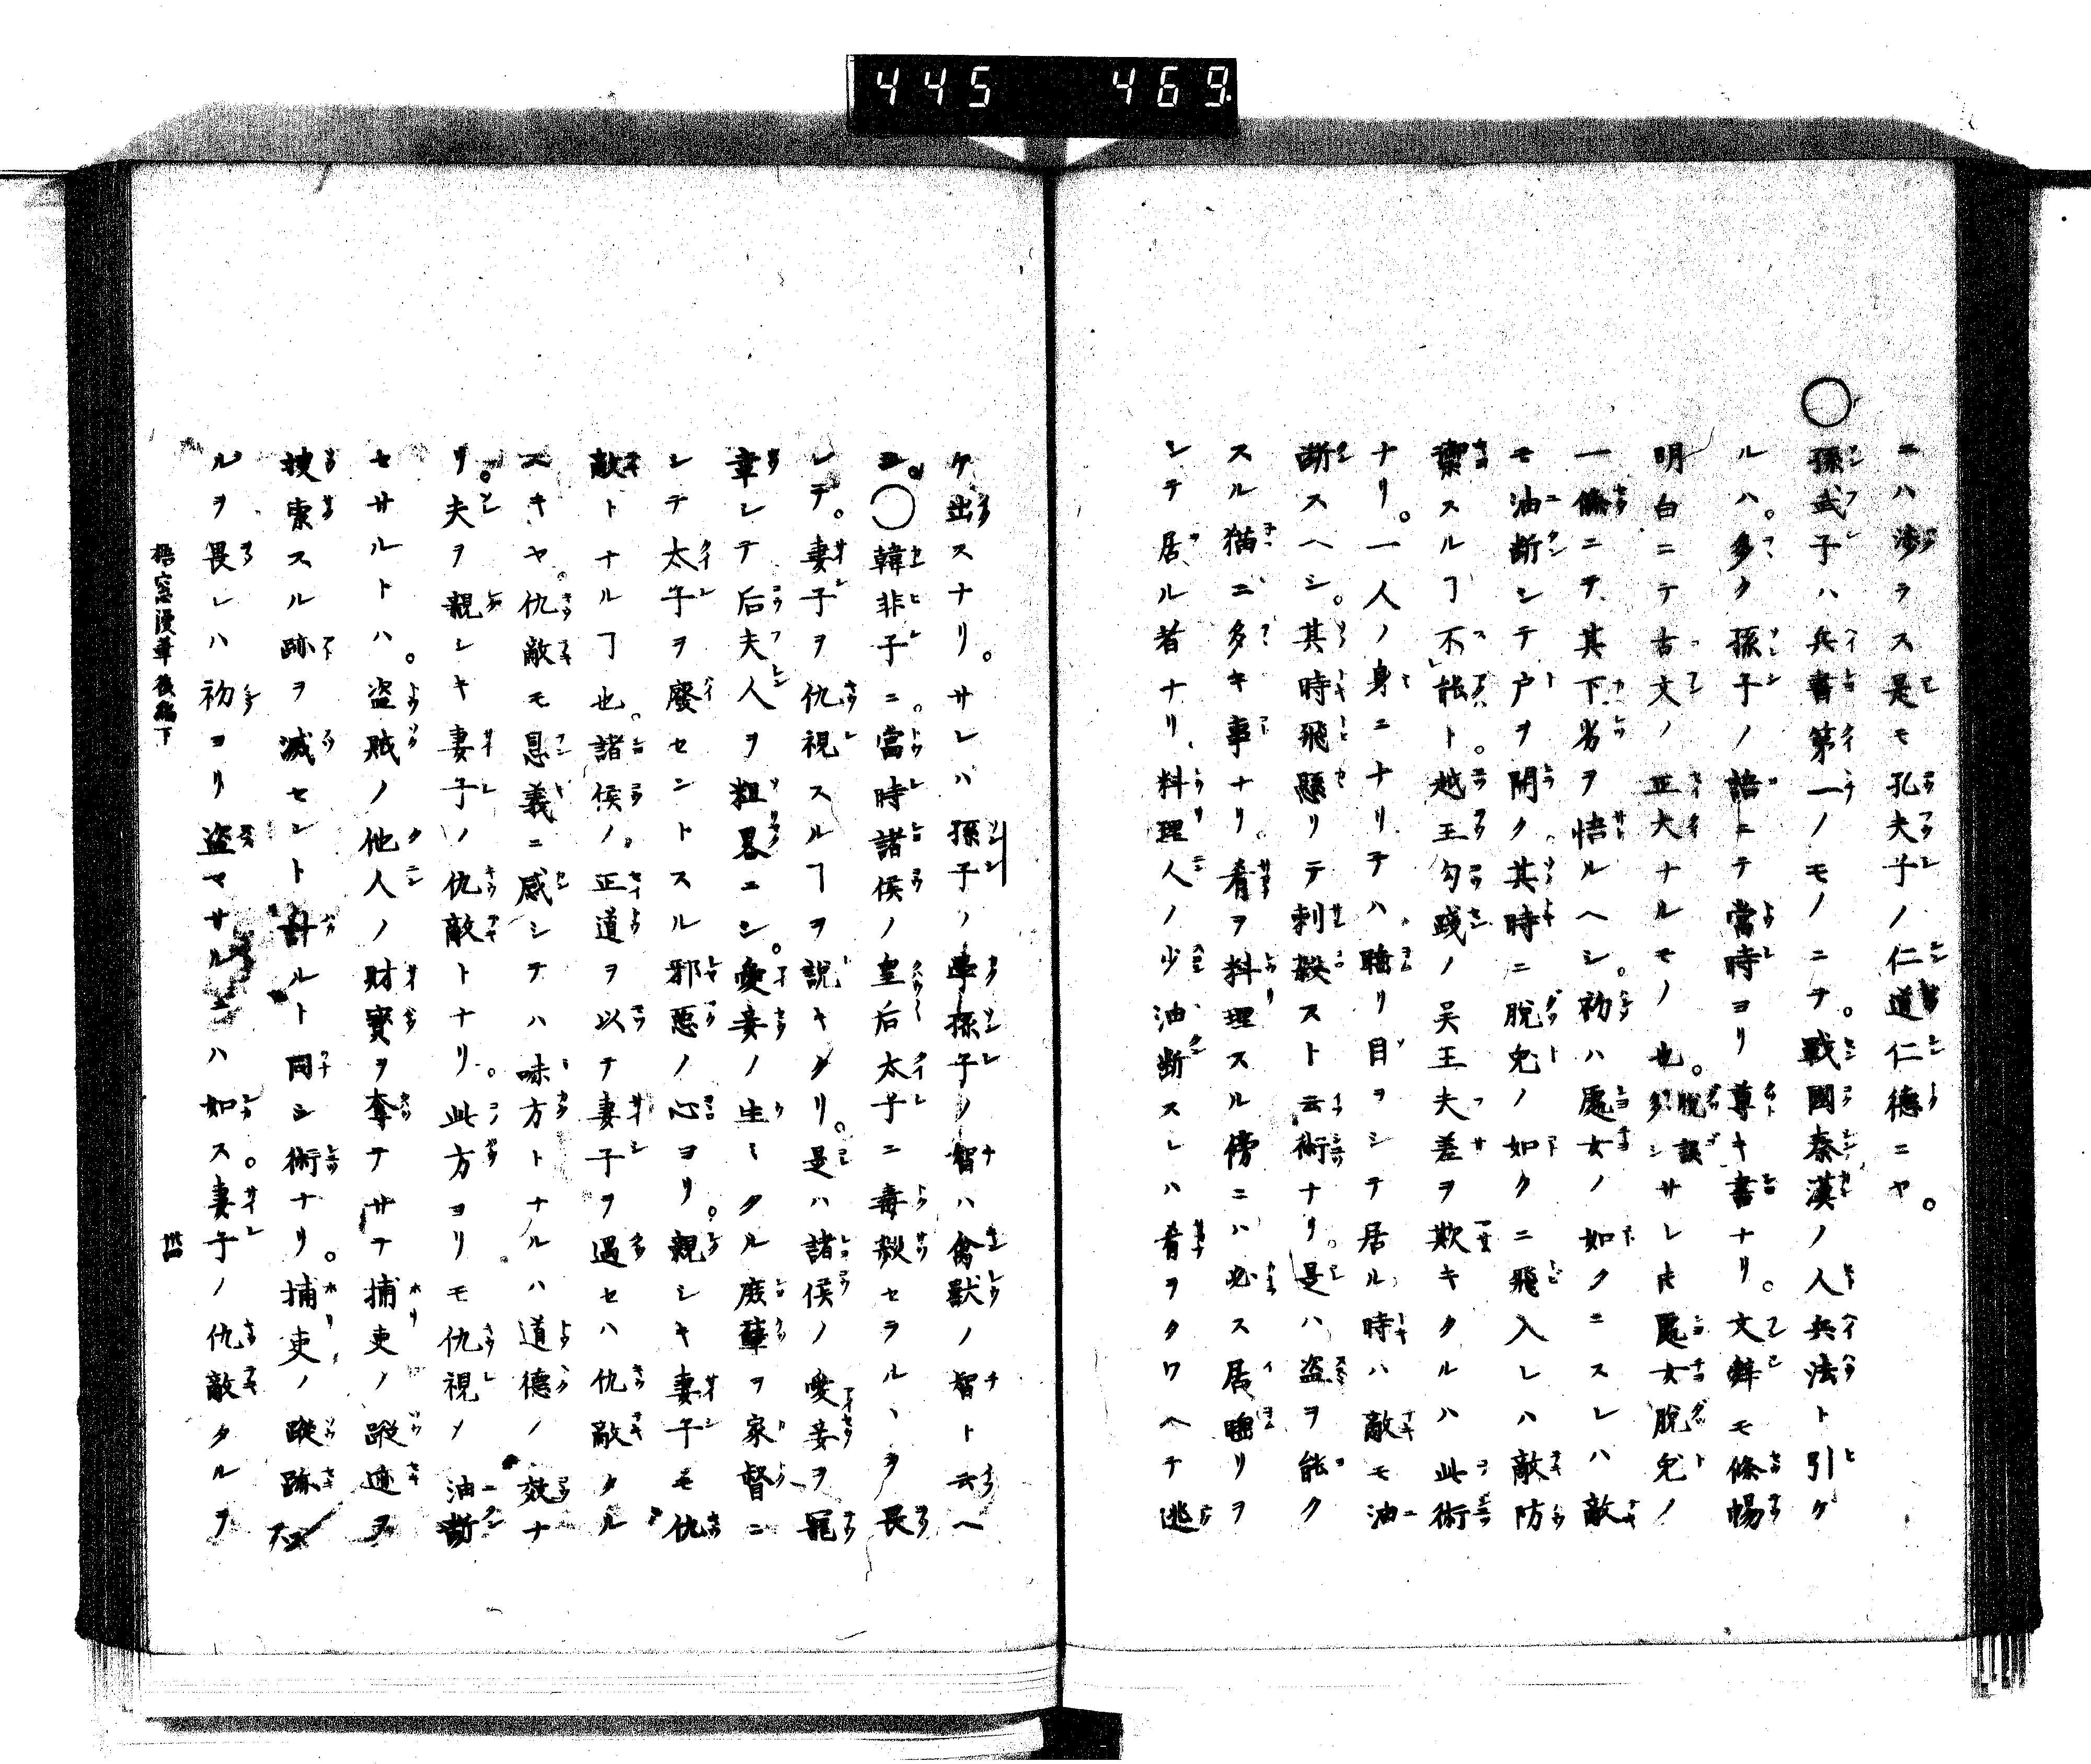 445 469
ニハ渉ラス是モ孔夫子ノ仁道仁德ニヤ。
◯孫武子ハ兵書第一ノモノニテ。戰國秦漢ノ人兵法ト引ク
ルハ。多ク孫子ノ語ニテ當時ヨリ尊キ書ナリ。文辭モ條暢
明白ニテ古文ノ正大ナルモノ也。脫誤多シサレ𪜈處女脫兔ノ
一條ニテ其下劣ヲ悟ルヘシ。初ハ處女ノ如クニスレハ敵
モ油斷シテ戸ヲ開ク。其時ニ脫兔ノ如クニ飛入レハ敵防
禦スルヿ不能ト。越王勾踐ノ吳王夫差ヲ欺キタルハ此術
ナリ。一人ノ身ニナリテハ睡リ目ヲシテ居ル時ハ敵モ油
斷スヘシ。其時飛懸リテ刺殺スト云術ナリ。是ハ盜ヲ能ク
スル猫ニ多キ事ナリ。肴ヲ料理スル傍ニハ必ス居睡リヲ
シテ居ル者ナリ、料理人ノ少油斷スレハ肴ヲクワヘテ逃
ケ出スナリ。サレハ孫子ノ學孫子ノ智ハ禽獸ノ智ト云ヘ
シ。◯韓非子ニ。當時諸侯ノ皇后太子ニ毒殺セラルヽヲ畏
レテ。妻子ヲ仇視スルヿヲ說キタリ。是ハ諸侯ノ愛妾ヲ寵
幸シテ后夫人ヲ粗畧ニシ。愛妾ノ生ミタル庶孽ヲ家督ニ
シテ太子ヲ廢セントスル邪惡ノ心ヨリ。親シキ妻子モ仇
敵トナルヿ也。諸侯ノ。正道ヲ以テ妻子ヲ遇セハ仇敵タル
ヘキヤ。仇敵モ恩義ニ感シテハ味方トナルハ道德ノ效ナ
リ。夫ヲ親シキ妻子ノ仇敵トナリ。此方ヨリモ仇視ノ油斷
セサルトハ。盜賊ノ他人ノ財寳ヲ奪テサテ捕吏ノ蹤迹ヲ
搜索スル跡ヲ滅セント計ルト同シ術ナリ。捕吏ノ蹤跡
ルヲ畏レハ初ヨリ盜マサルニハ如ス。妻子ノ仇敵タルヲ
梧窓漫筆後編下
卅四